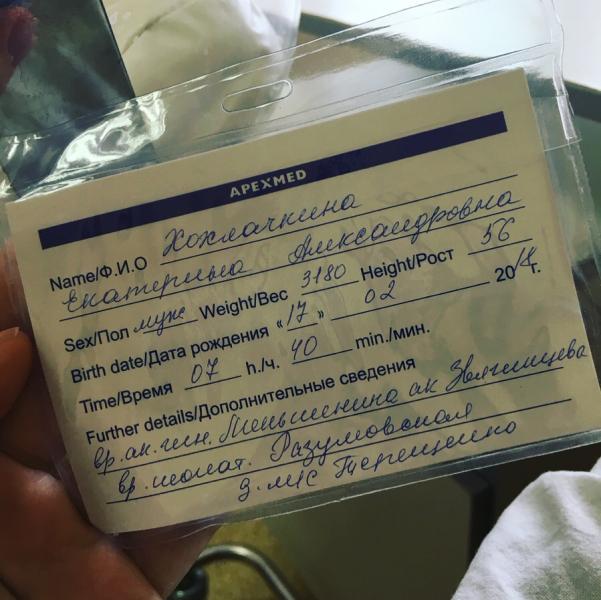 APEXMED
Name/Ф.И.О Хохлачкина
Екатерина Александровна
Sex/Пол муж Weight/Вес 3180 Height/Рост 56
Birth date/Дата рождения «17» 02 2018 г.
Time/Время 07 h./ч. 40 min./мин.
Further details/Дополнительные сведения
вр. ак. гин. Меньшенина ак Звягинцева
вр. неонат. Разумовская
д. м/с Терещенко